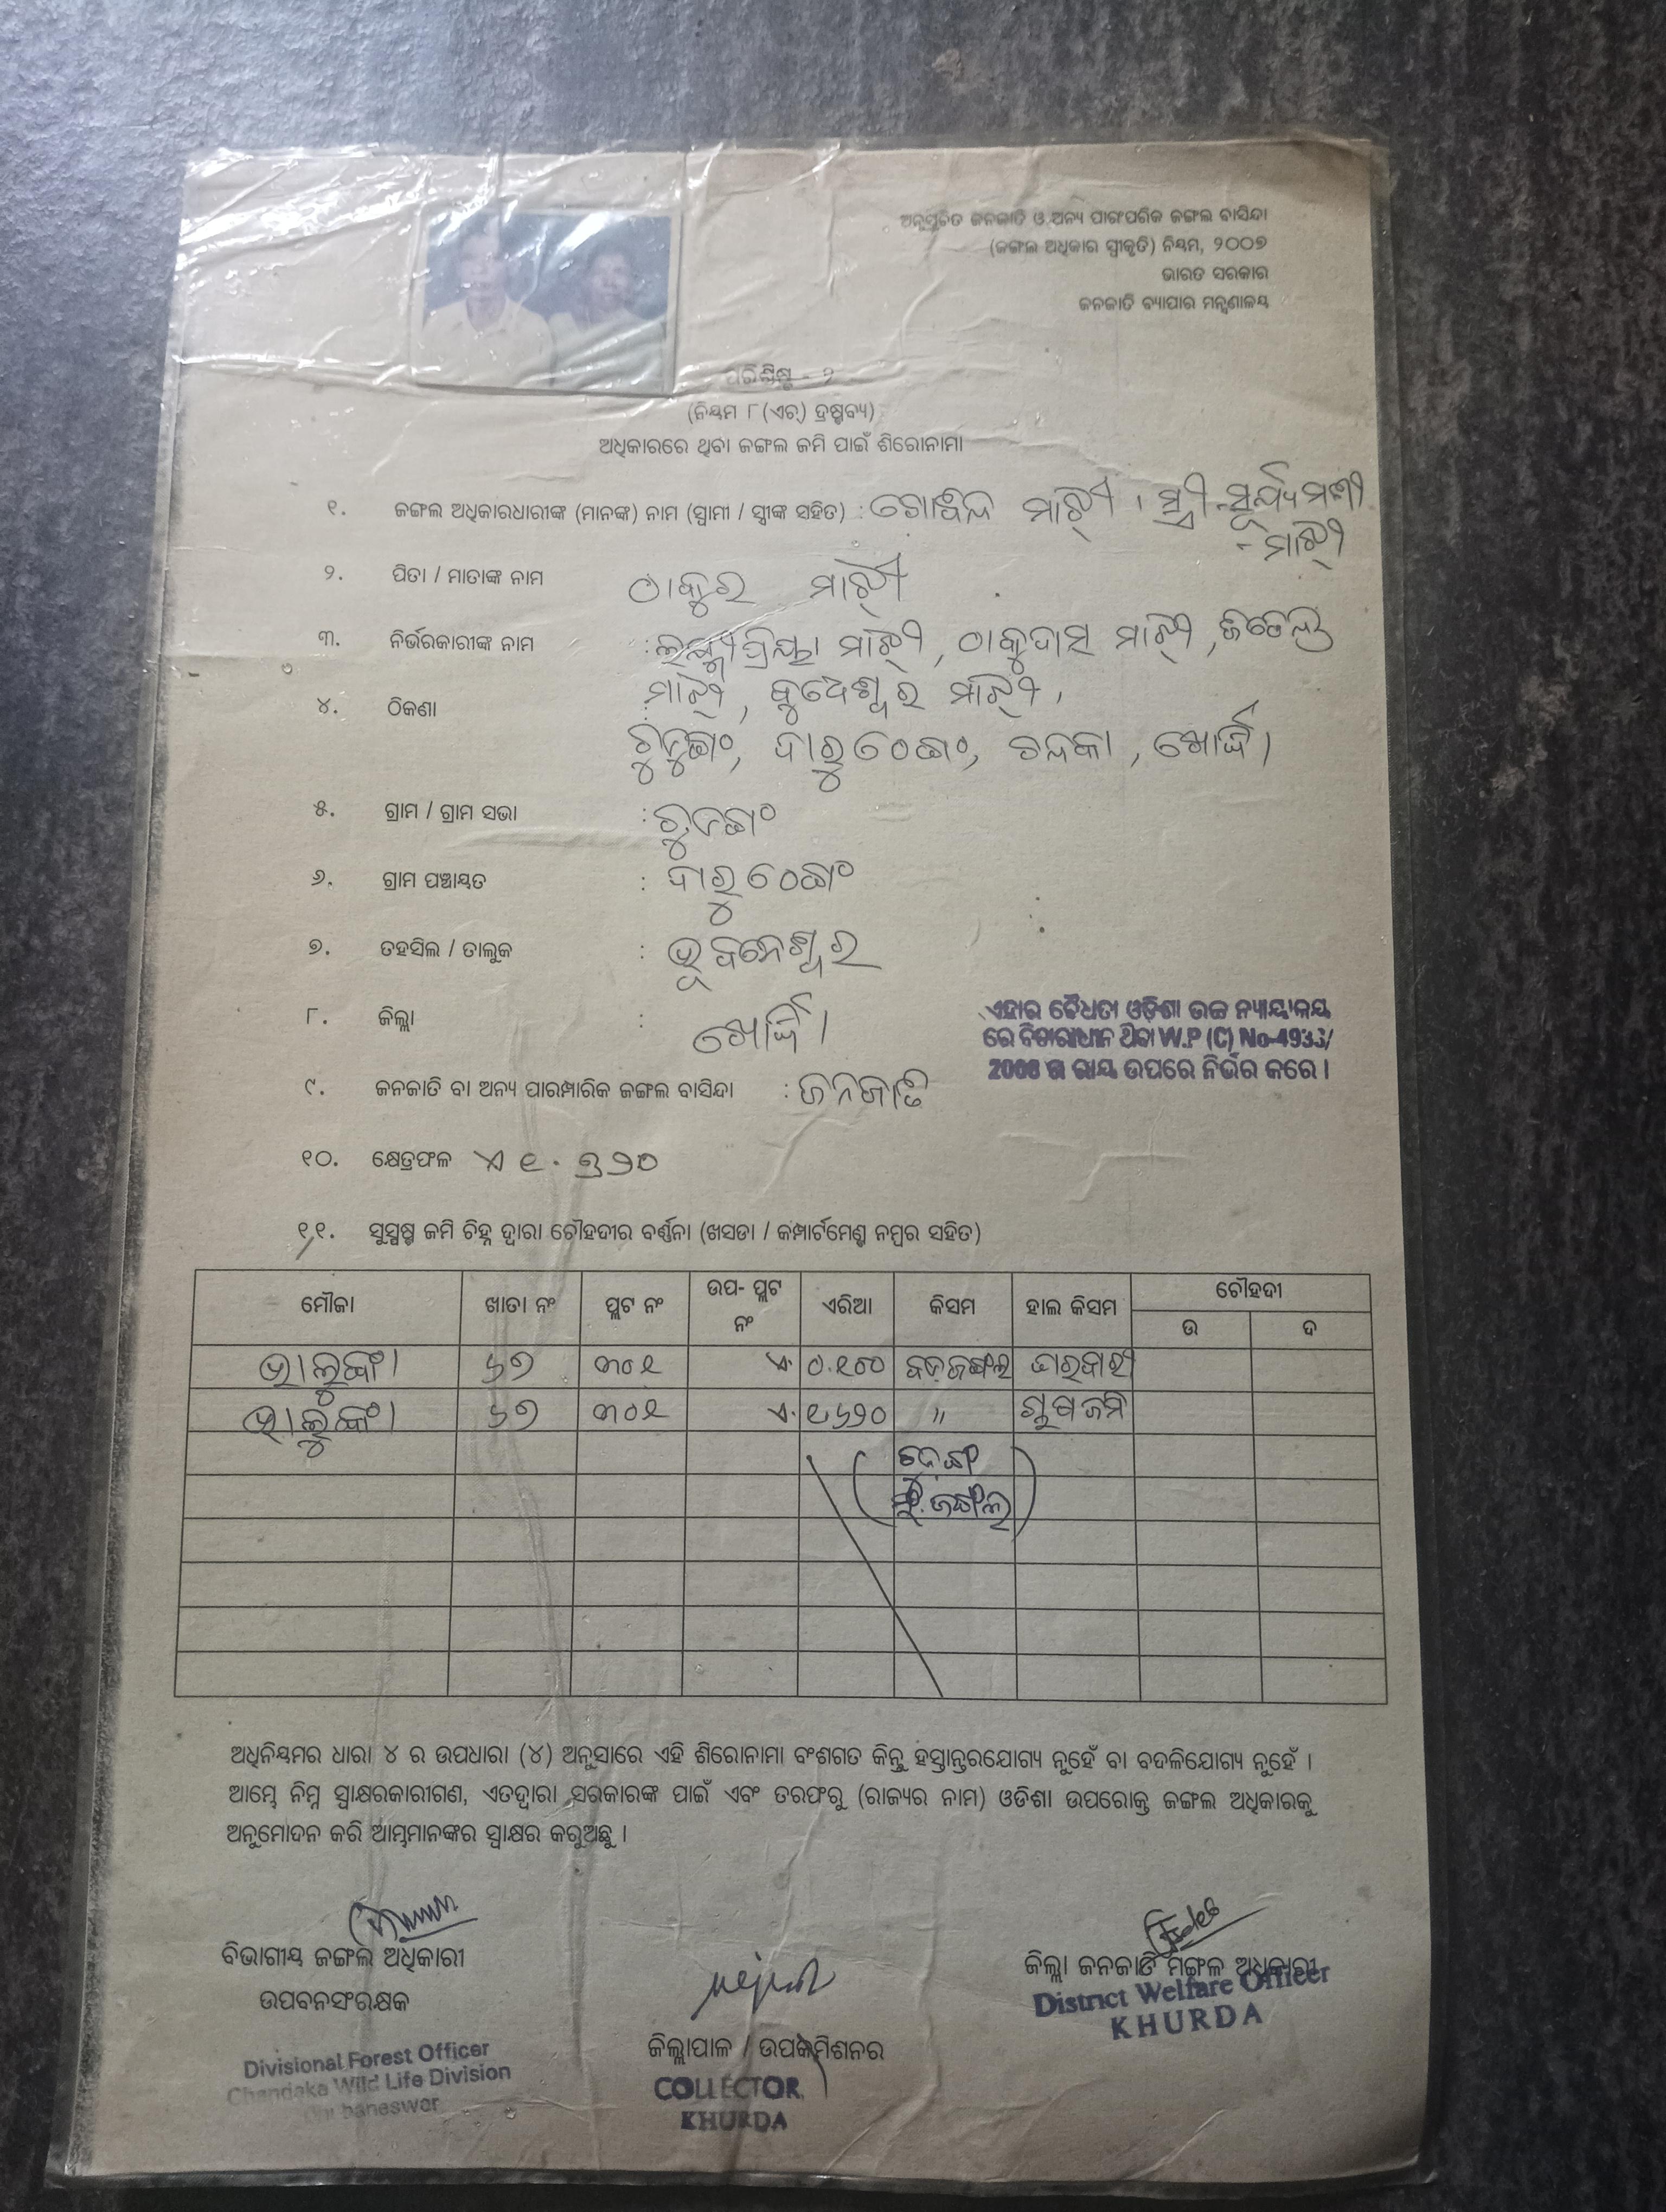 ଅନୁସୂଚିତ ଜନଜାତି ଓ ଅନ୍ୟ ପାରଂପରିକ ଜଙ୍ଗଲ ବାସିନ୍ଦା
(ଜଙ୍ଗଲ ଅଧିକାର ସ୍ୱୀକୃତି) ନିୟମ, ୨୦୦୭
ଭାରତ ସରକାର
ଜନଜାତି ବ୍ୟାପାର ମନ୍ତ୍ରଣାଳୟ
ପରିଶିଷ୍ଟ - ୨
(ନିୟମ ୮ (ଏଚ୍) ଦ୍ରଷ୍ଟବ୍ୟ)
ଅଧିକାରରେ ଥିବା ଜଙ୍ଗଲ ଜମି ପାଇଁ ଶିରୋନାମା
୧. ଜଙ୍ଗଲ ଅଧିକାରଧାରୀଙ୍କ (ମାନଙ୍କ) ନାମ (ସ୍ୱାମୀ / ସ୍ତ୍ରୀଙ୍କ ସହିତ) : ଗୋବିନ୍ଦ ମାଝୀ । ସ୍ତ୍ରୀ-ସୂର୍ଯ୍ୟମଣୀ
- ମାଝୀ
୨. ପିତା / ମାତାଙ୍କ ନାମ ଠାକୁର ମାଝୀ
୩. ନିର୍ଭରକାରୀଙ୍କ ନାମ : ଲକ୍ଷ୍ମୀପ୍ରିୟା ମାଝୀ, ଠାକୁଦାସ ମାଝୀ,
ମାଝୀ, ବୁଦେଶ୍ୱର ମାଝୀ ।
୪. ଠିକଣା :
ଚୁଡଙ୍ଗ, ଦାରୁଠେଙ୍ଗ, ଚନ୍ଦକା, ଖୋର୍ଦ୍ଧା ।
୫. ଗ୍ରାମ / ଗ୍ରାମ ସଭା : ଚୁଡଙ୍ଗ
୬. ଗ୍ରାମ ପଞ୍ଚାୟତ : ଦାରୁଠେଙ୍ଗ
୭. ତହସିଲ / ତାଲୁକ : ଭୂବନେଶ୍ୱର
୮. ଜିଲ୍ଲା : ଖୋର୍ଦ୍ଧା ।
ଏହାର ବୈଧତା ଓଡ଼ିଶା ଉଚ୍ଚ ନ୍ୟାୟାଳୟ
ରେ ବିଚାରାଧୀନ ଥିବା W.P (C) No-4933/
2008 ର ରାୟ ଉପରେ ନିର୍ଭର କରେ ।
୯. ଜନଜାତି ବା ଅନ୍ୟ ପାରମ୍ପାରିକ ଜଙ୍ଗଲ ବାସିନ୍ଦା : ଜନଜାତି
୧୦. କ୍ଷେତ୍ରଫଳ
୧୧. ସୁସ୍ପଷ୍ଟ ଜମି ଚିହ୍ନ ଦ୍ୱାରା ଚୌହଦୀର ବର୍ଣ୍ଣନା (ଖସଡା / କମ୍ପାର୍ଟମେଣ୍ଟ ନମ୍ବର ସହିତ)
ମୌଜା ଖାତା ନଂ ପ୍ଲଟ ନଂ ଉପ- ପ୍ଲଟ ନଂ ଏରିଆ କିସମ ହାଲ କିସମ ଚୌହଦୀ
ଉ ଦ
ଭାଲୁଙ୍କା ୬୭ ୩୦୧ ଏ. ୦.୧୦୦ ବଡ଼ଜଙ୍ଗଲ ଘରବାରୀ
ଭାଲୁଙ୍କା ୬୭ ୩୦୧ ଏ. ୧.୬୨୦ " ଚାଷ ଜମି
ଅଧିନିୟମର ଧାରା ୪ ର ଉପଧାରା (୪) ଅନୁସାରେ ଏହି ଶିରୋନାମା ବଂଶଗତ କିନ୍ତୁ ହସ୍ତାନ୍ତରଯୋଗ୍ୟ ନୁହେଁ ବା ବଦଳିଯୋଗ୍ୟ ନୁହେଁ ।
ଆମ୍ଭେ ନିମ୍ନ ସ୍ୱାକ୍ଷରକାରୀଗଣ, ଏତଦ୍ୱାରା ସରକାରଙ୍କ ପାଇଁ ଏବଂ ତରଫରୁ (ରାଜ୍ୟର ନାମ) ଓଡିଶା ଉପରୋକ୍ତ ଜଙ୍ଗଲ ଅଧିକାରକୁ
ଅନୁମୋଦନ କରି ଆମ୍ଭମାନଙ୍କର ସ୍ୱାକ୍ଷର କରୁଅଛୁ ।
ବିଭାଗୀୟ ଜଙ୍ଗଲ ଅଧିକାରୀ
ଉପବନସଂରକ୍ଷକ
Divisional Forest Officer
Chandaka Wild Life Division
ଜିଲ୍ଲାପାଳ / ଉପକମିଶନର
COLLECTOR
KHURDA
ଜିଲ୍ଲା ଜନଜାତି ମଙ୍ଗଳ ଅଧିକାରୀ
District Welfare Officer
KHURDA